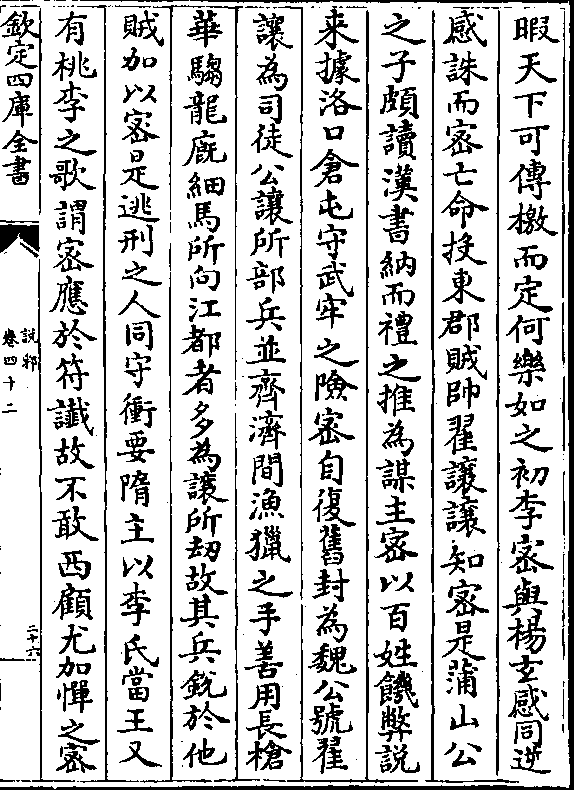 暇天下可傳檄而定何樂如之初李密與楊玄感同逆
感誅而密亡命投東郡賊帥翟讓讓知密是蒲山公
之子頗讀漢書納而禮之推為謀主密以百姓饑弊說
来據洛口倉屯守武牢之險密自復舊封為魏公號翟
讓為司徒公讓所部兵並齊濟間漁獵之手善用長槍
華騶龍廐細馬所向江都者多為讓所刼故其兵銳於他
賊加以密是逃刑之人同守衝要隋主以李氏當王又
有桃李之歌謂密應於符讖故不敢西顧尤加憚之密
欽定四庫全書
說郛
卷四十二
二十六